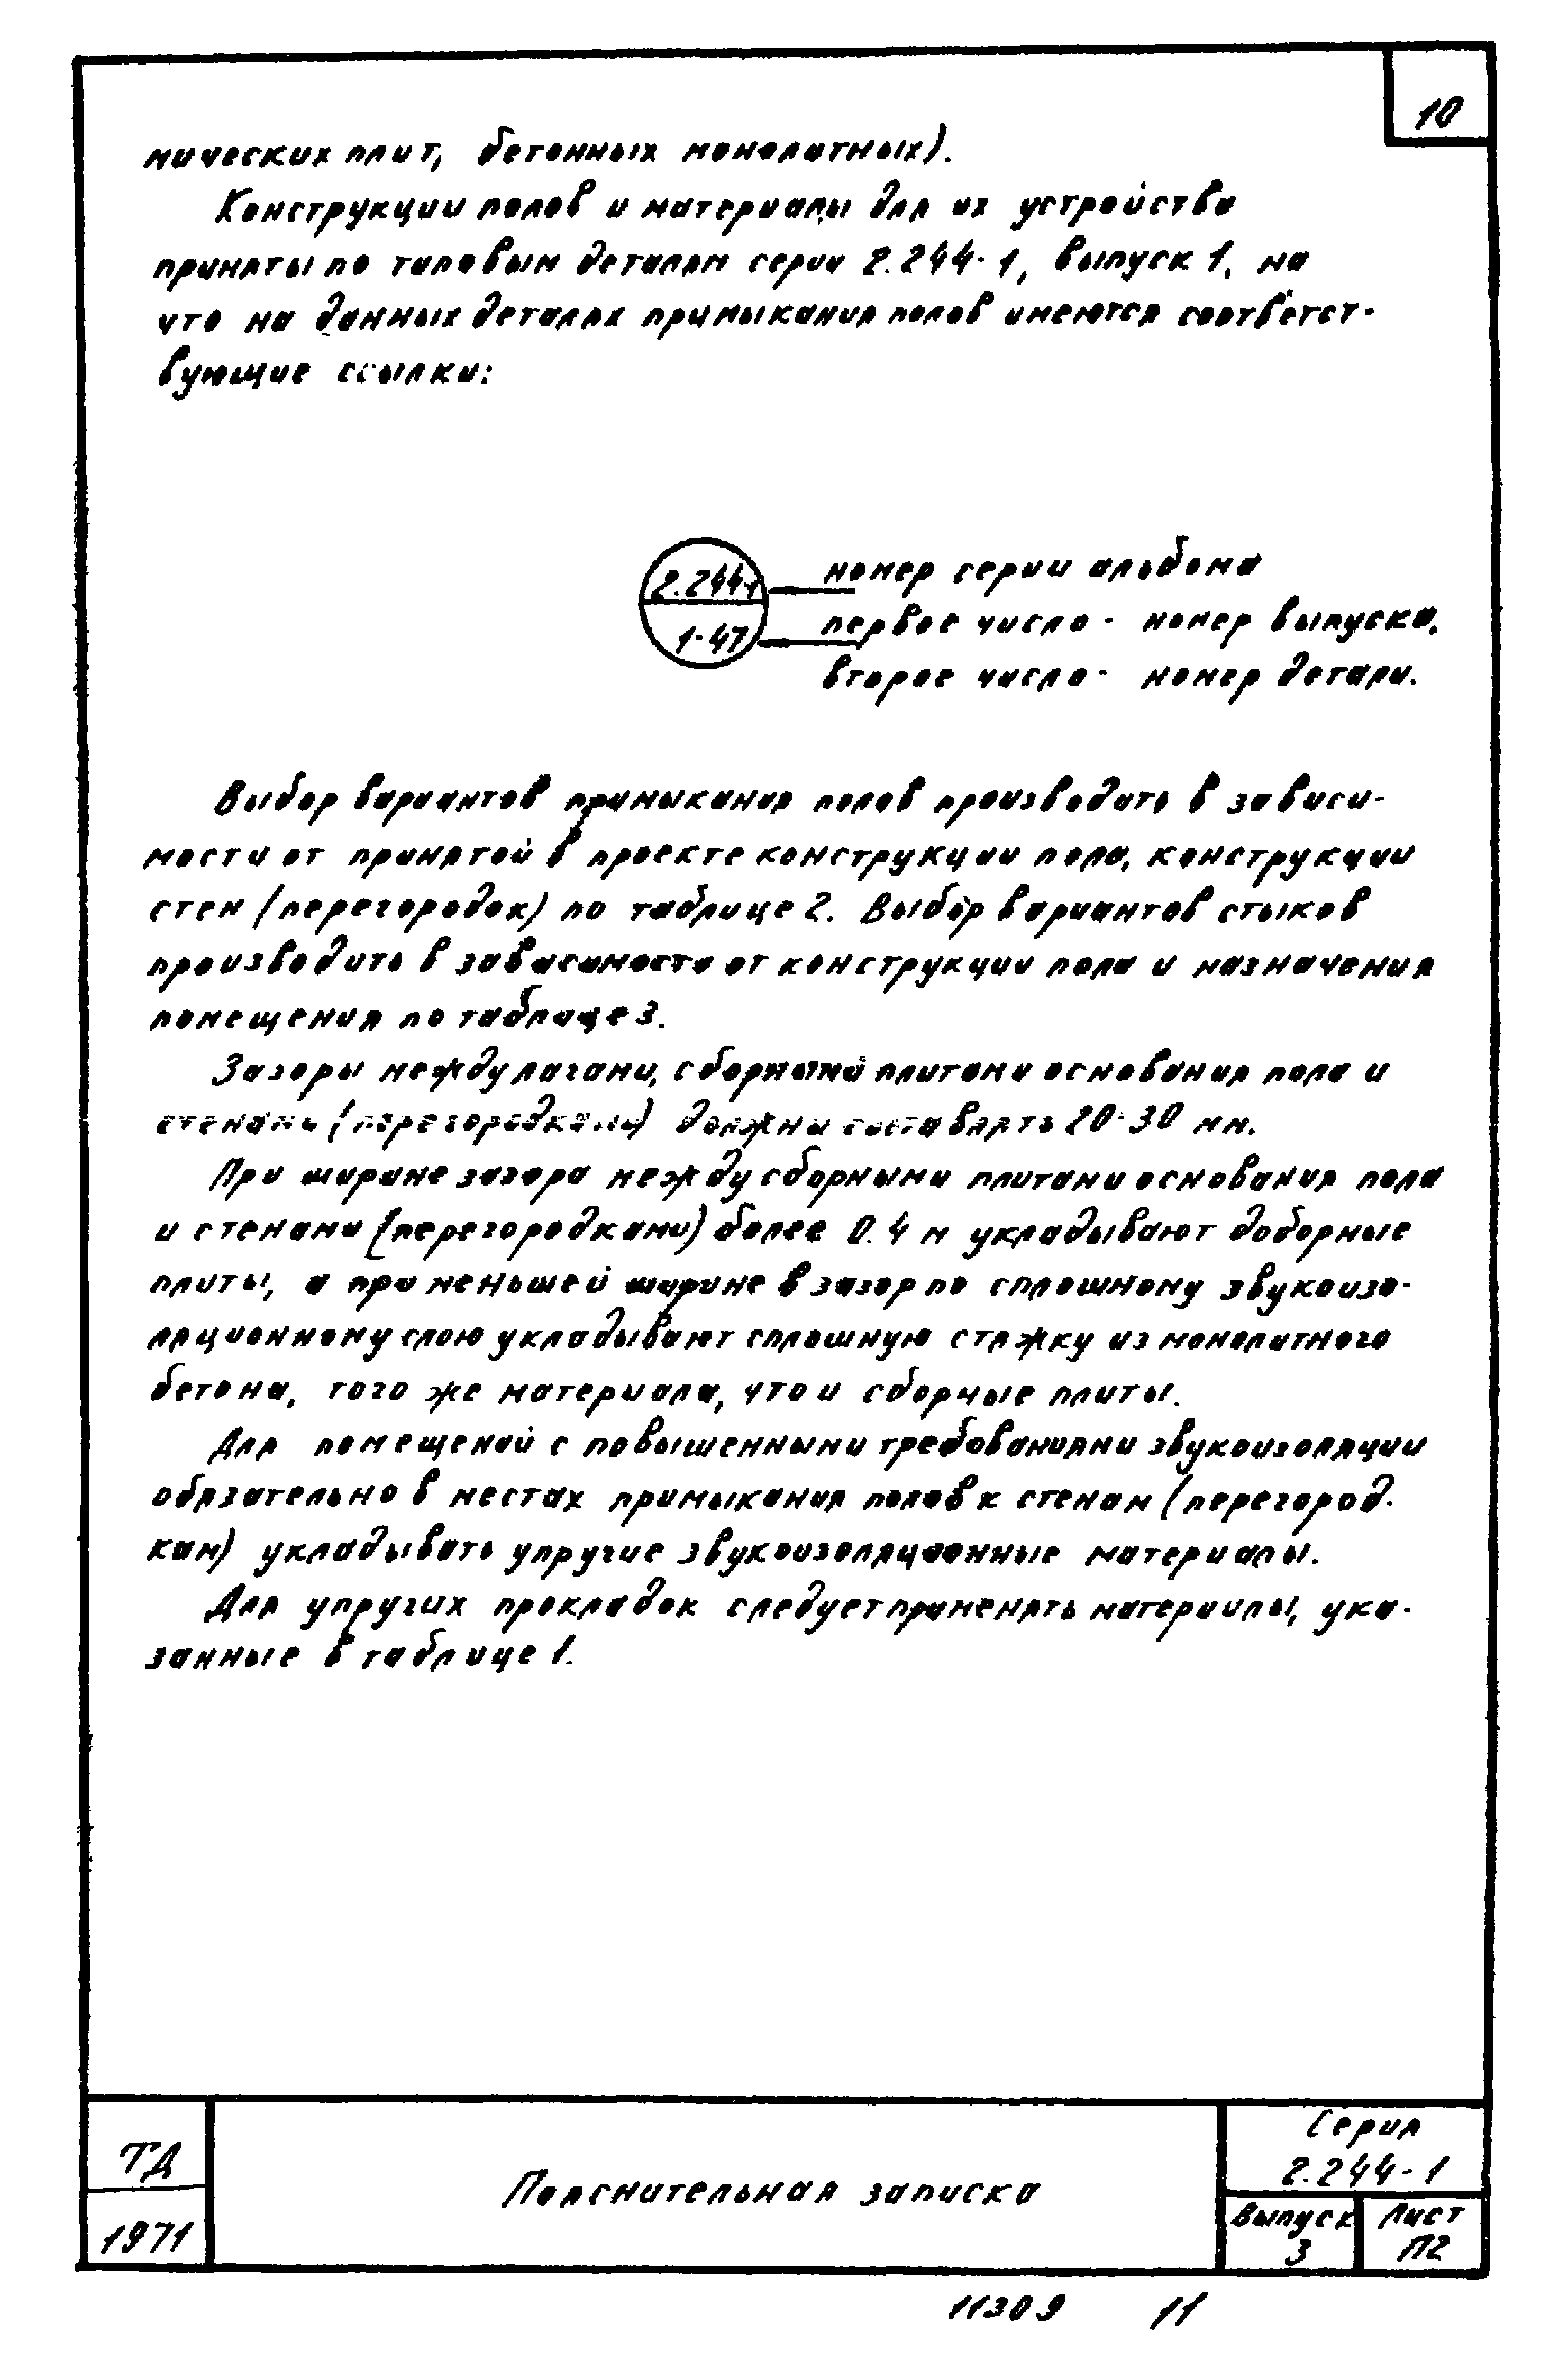 10
мических плит, бетонных монолитных).
Конструкции полов и материалы для их устройства
приняты по типовым деталям серии 2.244-1, выпуск 1, на
что на данных деталях примыкания полов имеются соответст-
вующие ссылки:
2.244-1 номер серии альбома
1-47 первое число - номер выпуска,
второе число - номер детали.
Выбор вариантов примыкания полов производить в зависи-
мости от принятой в проекте конструкции пола, конструкции
стен (перегородок) по таблице 2. Выбор вариантов стыков
производить в зависимости от конструкции пола и назначения
помещения по таблице 3.
Зазоры между лагами, сборными плитами основания пола и
стенами (перегородками) должны составлять 20-30 мм.
При ширине зазора между сборными плитами основания пола
и стенами (перегородками) более 0.4 м укладывают доборные
плиты, а при меньшей ширине в зазор по сплошному звукоизо-
ляционному слою укладывают сплошную стяжку из монолитного
бетона, того же материала, что и сборные плиты.
Для помещений с повышенными требованиями звукоизоляции
обязательно в местах примыкания полов к стенам (перегород-
кам) укладывать упругие звукоизоляционные материалы.
Для упругих прокладок следует применять материалы, ука-
занные в таблице 1.
ТД
1971
Пояснительная записка
Серия
2.244-1
Выпуск
3
Лист
П2
11309 11